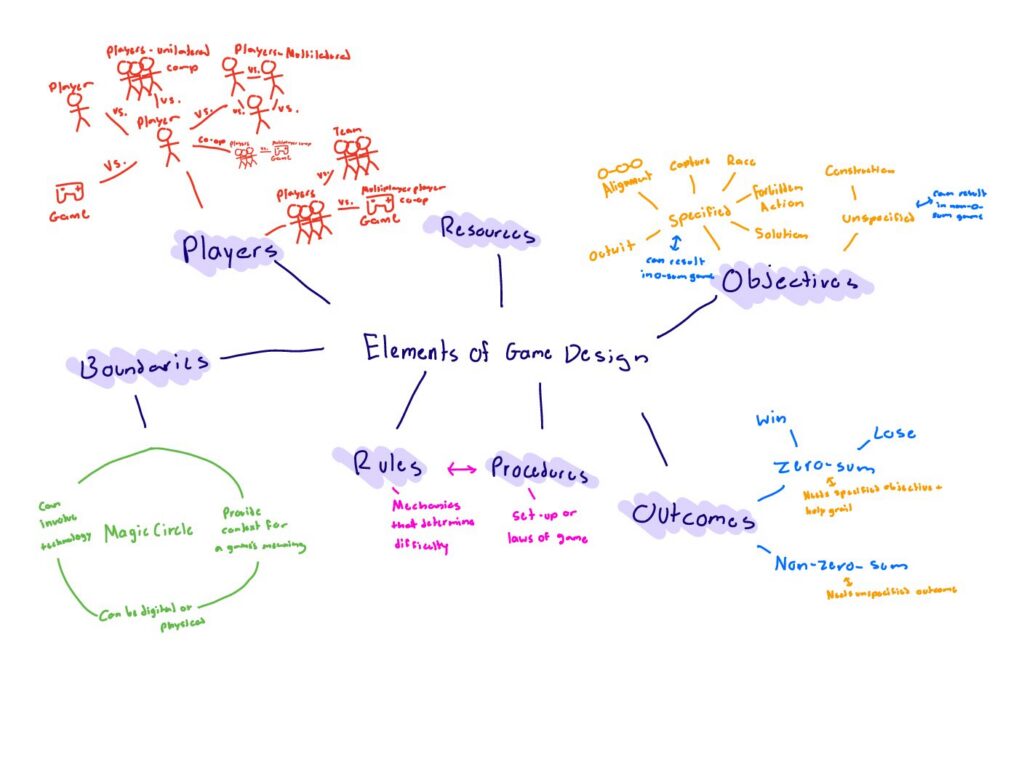 Players - unilatered
comp
Players - Multilatered
Player
vs.
vs.
vs.
vs.
vs.
vs.
Player
vs.
co-op
Players
vs.
Multiplayer co-op
Game
Team
vs.
Game
vs.
Players
vs.
Multiplayer player
co-op
Game
Players
Resources
Alignment
Capture
Race
Forbidden
Action
Specified
Solution
Outwit
can result
in 0-sum game
Construction
Unspecified
can result
in non-0-
sum game
Objectives
Elements of Game Design
Boundaries
Can
involve
technology
Magic Circle
Provide
context for
a game's meaning
Can be digital or
physical
Rules
Mechanics
that determine
difficulty
Procedures
set-up or
laws of game
Outcomes
Win
Lose
Zero-sum
Needs specified objective +
help grail
Non-zero-sum
Needs unspecified outcome